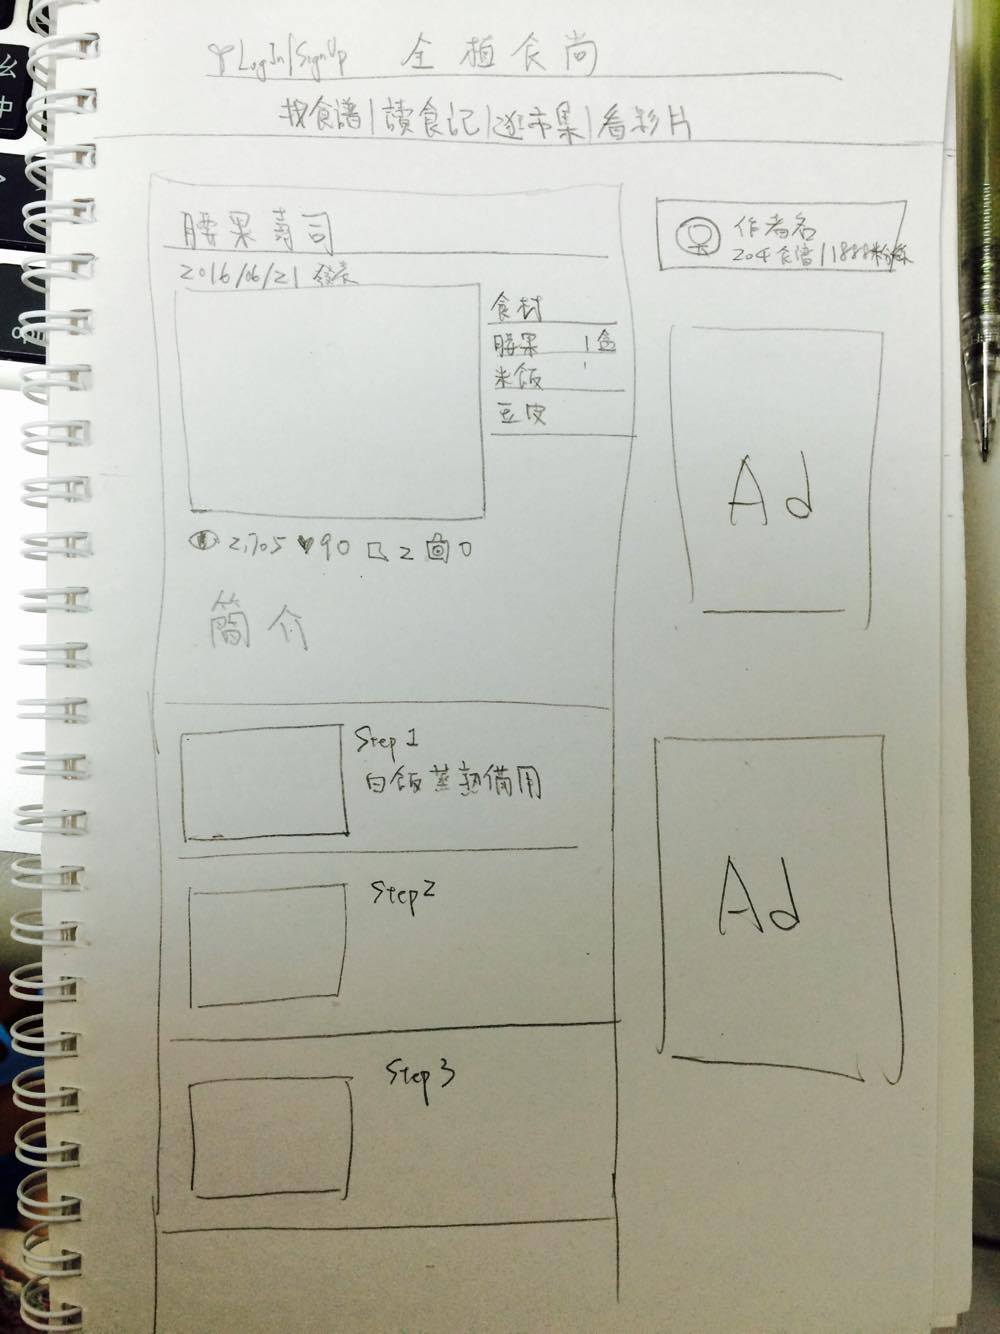 LogIn/SignUp 全植食尚
找食譜|讀食記|逛市集|看影片
腰果壽司
2016/06/21 發表
食材
腰果 1盒
米飯
豆皮
2,705 90 2 0
簡介
Step 1
白飯蒸熟備用
Step2
Step3
作者名
204食譜/1888粉絲
Ad
Ad